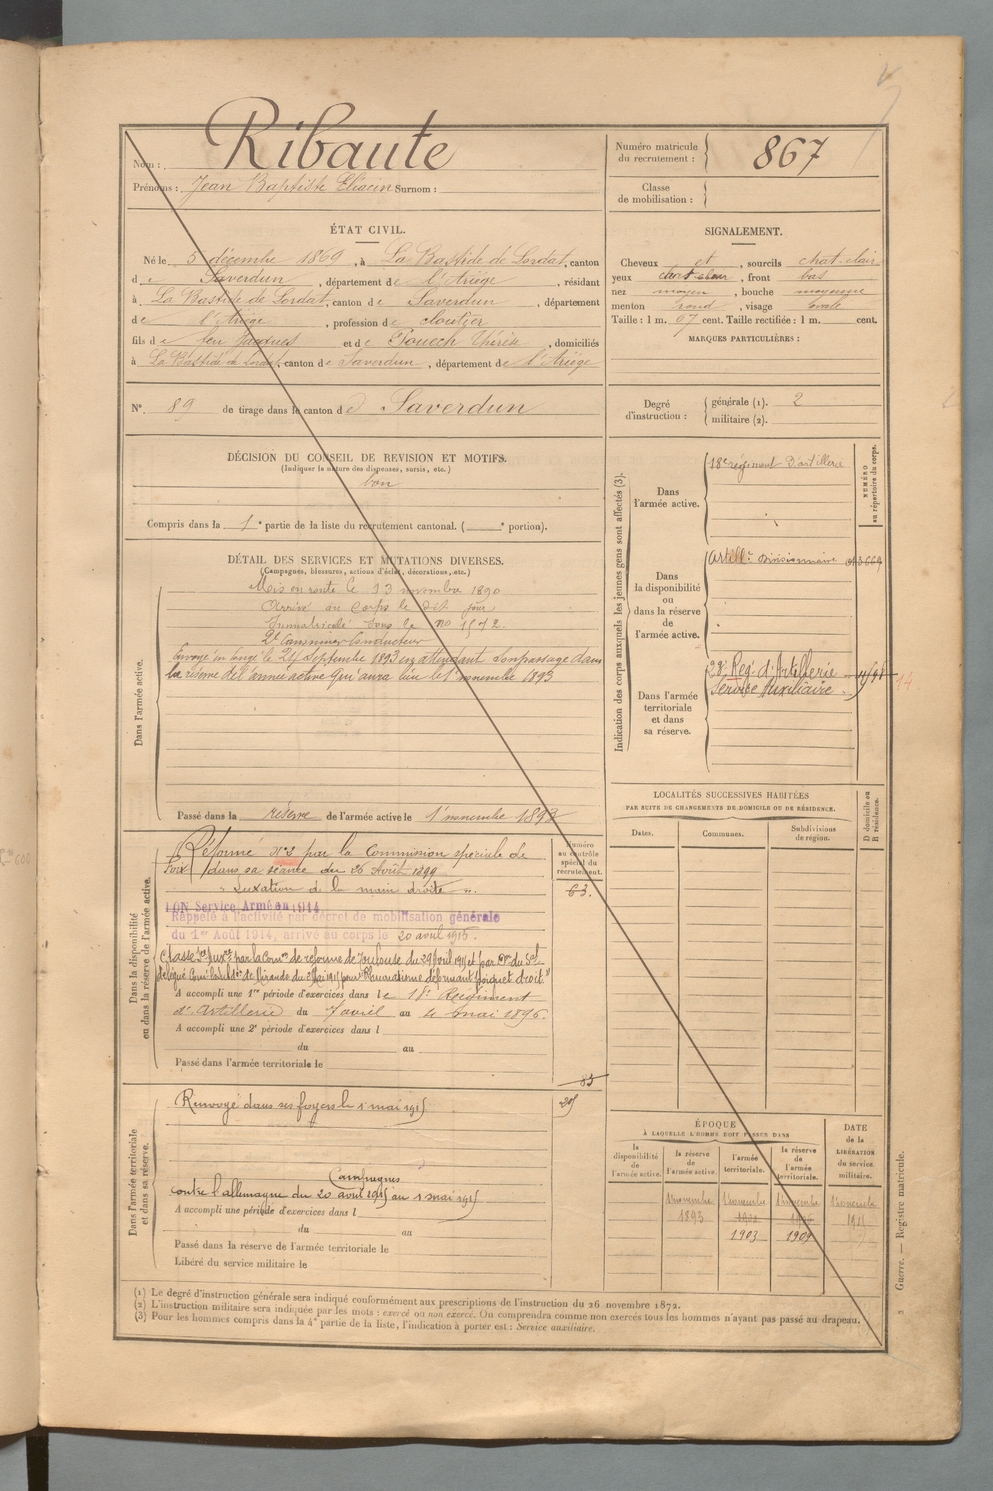 Nom : Ribaute
Prénoms : Jean Baptiste Eliacin Surnom :
Numéro matricule du recrutement : 867
Classe de mobilisation :
ÉTAT CIVIL.
Né le 5 décembre 1869, à La Bastide de Lordat, canton
de Saverdun, département de l'Ariège, résidant
à La Bastide de Lordat, canton de Saverdun, département
de l'Ariège, profession de cloutier
fils de feu Jacques et de Pouech Thérèse, domiciliés
à La Bastide de Lordat, canton de Saverdun, département de l'Ariège
N° 89 de tirage dans le canton de Saverdun
SIGNALEMENT.
Cheveux et, sourcils chat-clair
yeux chat-clair, front bas
nez moyen, bouche moyenne
menton rond, visage ovale
Taille : 1 m. 67 cent. Taille rectifiée : 1 m. cent.
MARQUES PARTICULIÈRES :
Degré d'instruction : générale (1). 2
militaire (2).
DÉCISION DU CONSEIL DE REVISION ET MOTIFS.
(Indiquer la nature des dispenses, sursis, etc.)
bon
Compris dans la 1e partie de la liste du recrutement cantonal. ( e portion).
DÉTAIL DES SERVICES ET MUTATIONS DIVERSES.
(Campagnes, blessures, actions d'éclat, décorations, etc.)
Dans l'armée active.
Mis en route le 13 novembre 1890
Arrivé au corps le dit jour
Immatriculé sous le no 1572.
2e Canonnier Conducteur
Envoyé en congé le 24 septembre 1893 en attendant son passage dans
la réserve de l'armée active qui aura lieu le 1er novembre 1893
Passé dans la réserve de l'armée active le 1er novembre 1893
Indication des corps auxquels les jeunes gens sont affectés (3).
NUMÉRO au répertoire du corps.
Dans l'armée active.
18e régiment D'artillerie
Dans la disponibilité ou dans la réserve de l'armée active.
Artillie Divisionnaire
Dans l'armée territoriale et dans sa réserve.
28e Reg. d'Artillerie
Service Auxiliaire
14
LOCALITÉS SUCCESSIVES HABITÉES
PAR SUITE DE CHANGEMENTS DE DOMICILE OU DE RÉSIDENCE.
Dates. Communes. Subdivisions de région. D domicile ou R résidence.
Dans la disponibilité ou dans la réserve de l'armée active.
Numéro au contrôle spécial du recrutement.
63.
Réformé N° 2 par la Commission spéciale de
Foix dans sa séance du 26 Août 1899
" Luxation de la main droite ".
BON Service Armé en 1914
Rappelé à l'activité par décret de mobilisation générale
du 1er Août 1914, arrivé au corps le 20 avril 1915.
A accompli une 1re période d'exercices dans le 18e Régiment
d'Artillerie du 7 avril au 4 mai 1896.
A accompli une 2e période d'exercices dans l
du au
Passé dans l'armée territoriale le
Dans l'armée territoriale et dans sa réserve.
Renvoyé dans ses foyers le 1 mai 1915
Campagnes
contre l'allemagne du 20 avril 1915 au 1 mai 1915
A accompli une période d'exercices dans l
du au
Passé dans la réserve de l'armée territoriale le
Libéré du service militaire le
ÉPOQUE
À LAQUELLE L'HOMME DOIT PASSER DANS
la disponibilité de l'armée active. la réserve de l'armée active. l'armée territoriale. la réserve de l'armée territoriale.
DATE de la LIBÉRATION du service militaire.
1er novembre 1er novembre 1er novembre 1er novembre
1893
1903 1909
(1) Le degré d'instruction générale sera indiqué conformément aux prescriptions de l'instruction du 26 novembre 1872.
(2) L'instruction militaire sera indiquée par les mots : exercé ou non exercé. On comprendra comme non exercés tous les hommes n'ayant pas passé au drapeau.
(3) Pour les hommes compris dans la 4e partie de la liste, l'indication à porter est : Service auxiliaire.
Guerre. — Registre matricule.